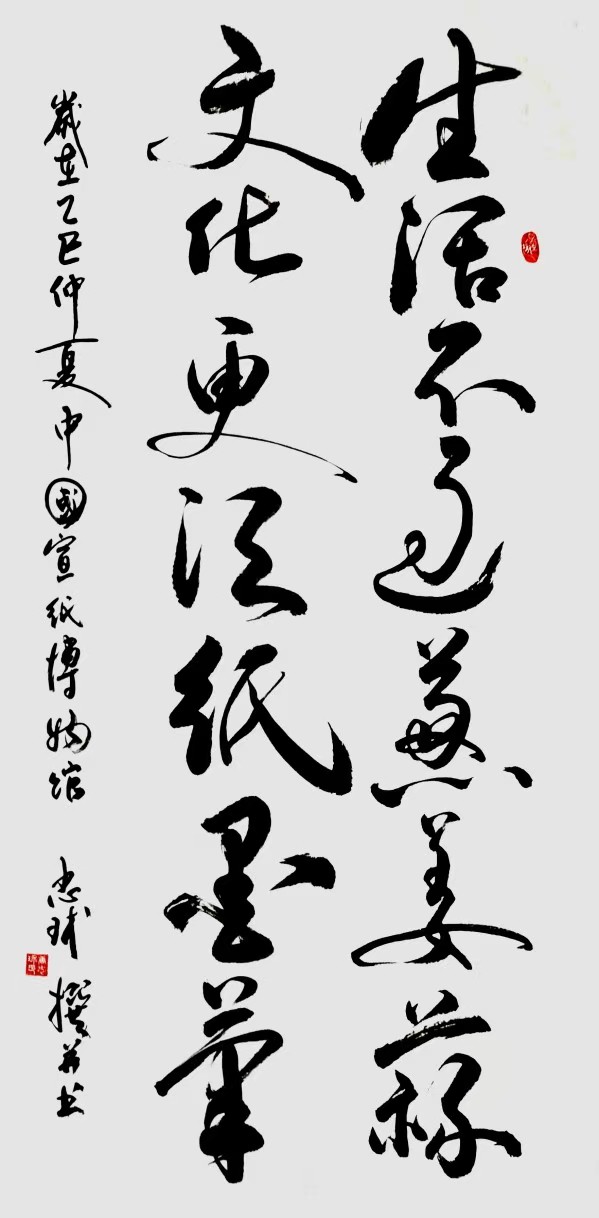 生活不过葱姜蒜
文化更须纸墨笔
歲在乙巳仲夏中國宣纸博物馆 忠球 撰并书